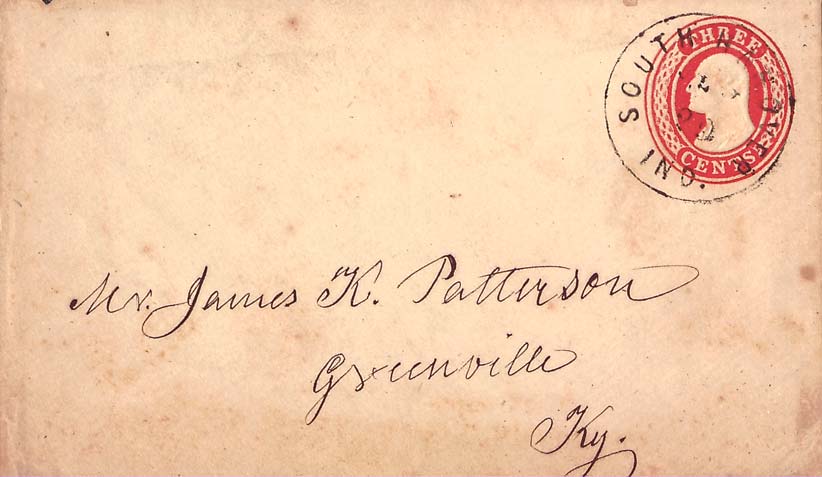 THREE
CENTS
SOUTH HANOVER
IND.
Mr. James K. Patterson
Greenville
Ky.